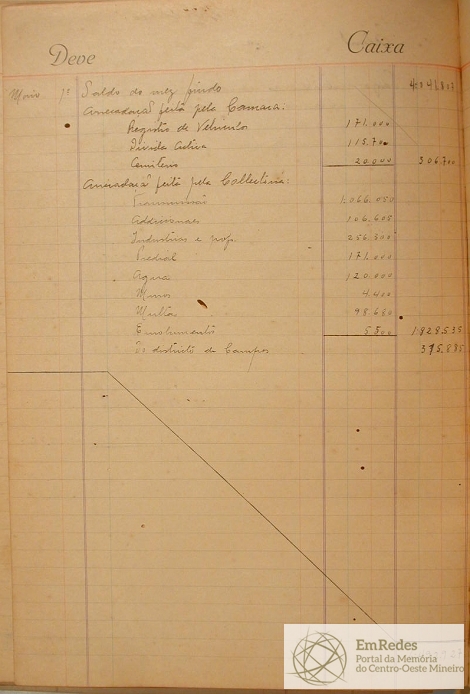 Deve Caixa
Maio 1º Saldo do mez findo 4:041.813
Arrecadação feita pela Camara:
Registro de Vehiculo 171.000
Divida Activa 115.700
Cemiterio 20.000 306.700
Arrecadação feita pela Collectoria:
Transmissão 1:066.050
Addicionaes 106.605
Industrias e prof. 256.300
Predial 171.000
Agua 120.000
Muros 4.400
Multa 98.680
Emolumento 5.500 1:828.535
Do districto de Campos 315.885
EmRedes
Portal da Memória
do Centro-Oeste Mineiro